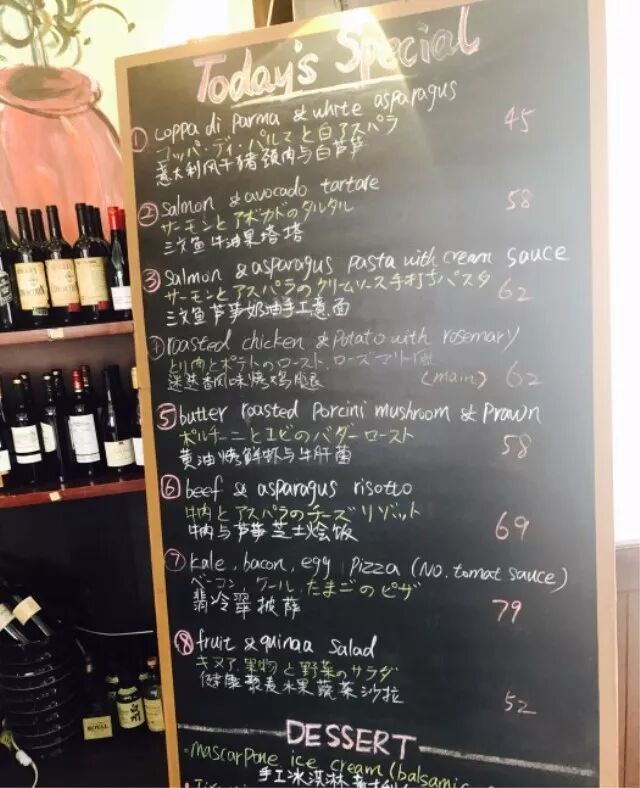 Today's Special
① coppa di parma & white asparagus
コッパ・ディ・パルマと白アスパラ 45
意大利风干猪颈肉与白芦笋
② salmon & avocado tartare
サーモンとアボカドのタルタル 58
三文鱼牛油果塔塔
③ salmon & asparagus pasta with cream sauce
サーモンとアスパラのクリームソース手打ちパスタ 62
三文鱼芦笋奶油手工意面
roasted chicken & potato with rosemary
とり肉とポテトのロースト、ローズマリー風
迷迭香风味烧鸡腿 (main) 62
⑤ butter roasted Porcini mushroom & Prawn
ポルチーニとエビのバターロースト 58
黄油烤鲜虾与牛肝菌
⑥ beef & asparagus risotto
牛肉とアスパラのチーズリゾット
牛肉与芦笋芝士烩饭 69
⑦ kale, bacon, egg pizza (No. tomat sauce)
ベーコン、ケール、たまごのピザ
翡冷翠披萨 79
⑧ fruit & quinaa salad
キヌア、果物と野菜のサラダ
健康藜麦水果蔬菜沙拉 52
DESSERT
mascarpone ice cream (balsamic
手工冰淇淋
ROYAL